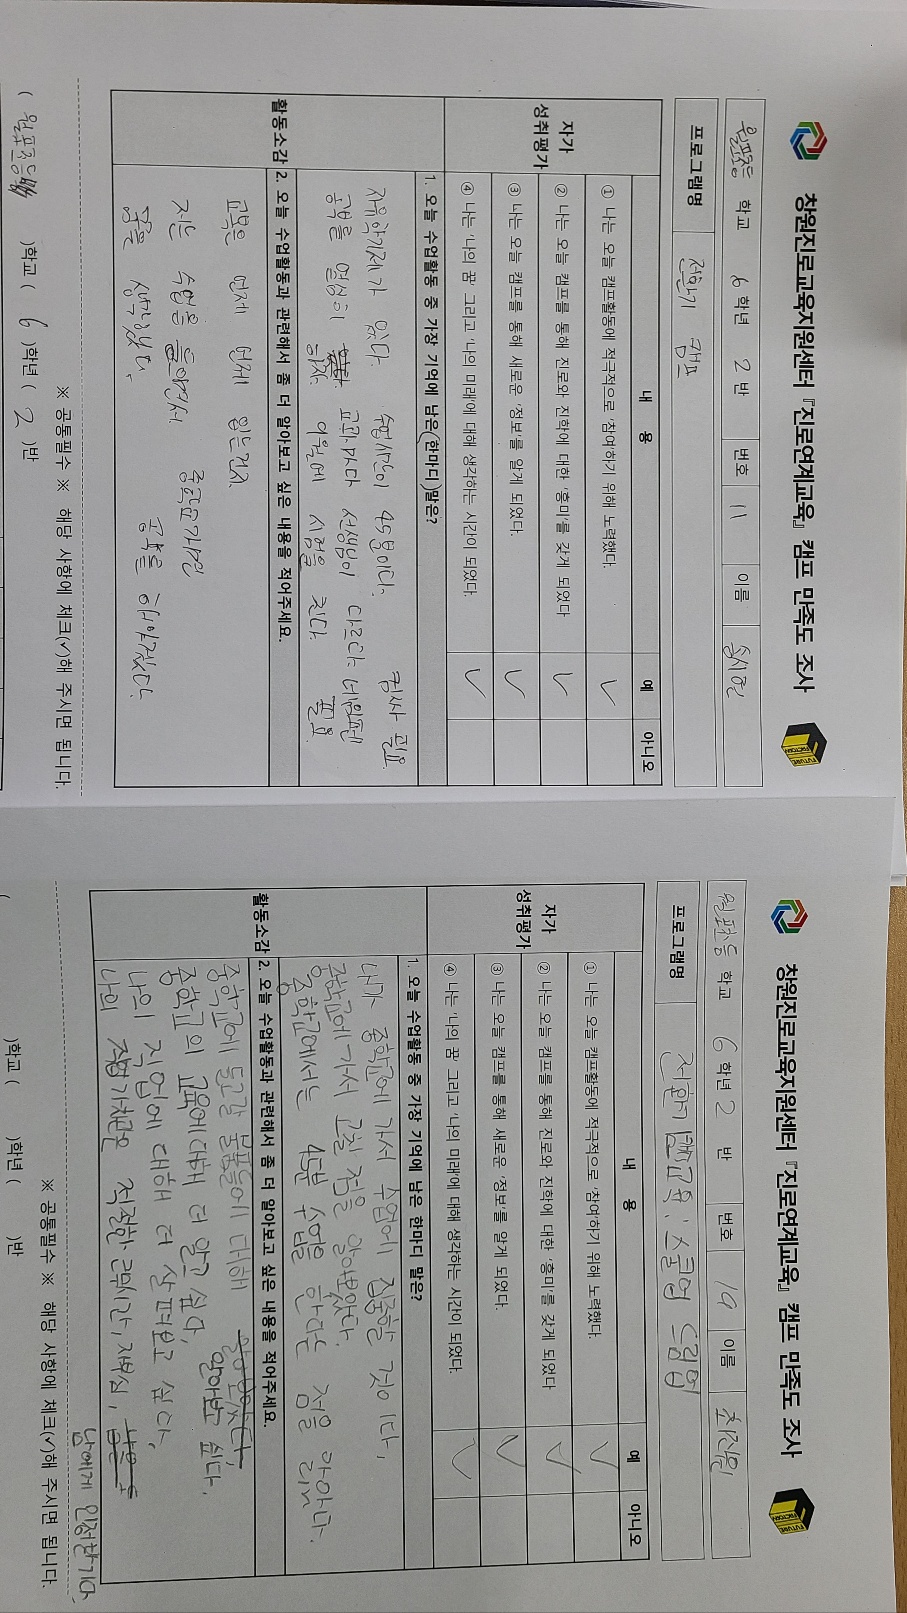 창원진로교육지원센터 『진로연계교육』 캠프 만족도 조사
FUTURE FACTORY
월포초등 학교 6 학년 2 반 번호 11 이름 송시현
프로그램명 전환기 캠프
내 용 예 아니오
자가
성취평가
① 나는 오늘 캠프활동에 적극적으로 '참여'하기 위해 노력했다. ✓
② 나는 오늘 캠프를 통해 진로와 진학에 대한 '흥미'를 갖게 되었다 ✓
③ 나는 오늘 캠프를 통해 새로운 '정보'를 알게 되었다. ✓
④ 나는 '나의 꿈' 그리고 '나의 미래'에 대해 생각하는 시간이 되었다. ✓
활동소감
1. 오늘 수업활동 중 가장 기억에 남은(한마디)말은?
자유학기제가 있다 수업시간이 45분이다. 컴싸 필요
공부를 열심히 하자. 교과마다 선생님이 다르다 네임펜
이월에 시험을 친다. 필요
2. 오늘 수업활동과 관련해서 좀 더 알아보고 싶은 내용을 적어주세요.
교복은 언제 입는건지
저는 수업을 들으면서 중학교가면 공부를 해야겠다.
꿈을 생각했다.
※ 공통필수 ※ 해당 사항에 체크(✓)해 주시면 됩니다.
( 월포초등 )학교 ( 6 )학년 ( 2 )반
창원진로교육지원센터 『진로연계교육』 캠프 만족도 조사
FUTURE FACTORY
월포초등 학교 6 학년 2 반 번호 19 이름 최진원
프로그램명 전환기 진로교육: 스쿨업 드림업
내 용 예 아니오
자가
성취평가
① 나는 오늘 캠프활동에 적극적으로 '참여'하기 위해 노력했다. ✓
② 나는 오늘 캠프를 통해 진로와 진학에 대한 '흥미'를 갖게 되었다 ✓
③ 나는 오늘 캠프를 통해 새로운 '정보'를 알게 되었다. ✓
④ 나는 '나의 꿈' 그리고 '나의 미래'에 대해 생각하는 시간이 되었다. ✓
활동소감
1. 오늘 수업활동 중 가장 기억에 남은 한마디 말은?
내가 중학교에 가서 수업에 집중할 것이다,
중학교에 가서 고칠 점을 알아보았다.
중학교에서는 45분 수업을 한다는 점을
2. 오늘 수업활동과 관련해서 좀 더 알아보고 싶은 내용을 적어주세요.
중학교에 들고갈 물품들에 대해 알아보고 싶다.
중학교의 교육에 대해 더 알고 싶다,
나의 직업에 대해 더 살펴보고 싶다,
나의 직업가치관은 적절한 근무시간, 자부심,
남에게 인정받기다.
※ 공통필수 ※ 해당 사항에 체크(✓)해 주시면 됩니다.
( )학교 ( )학년 ( )반